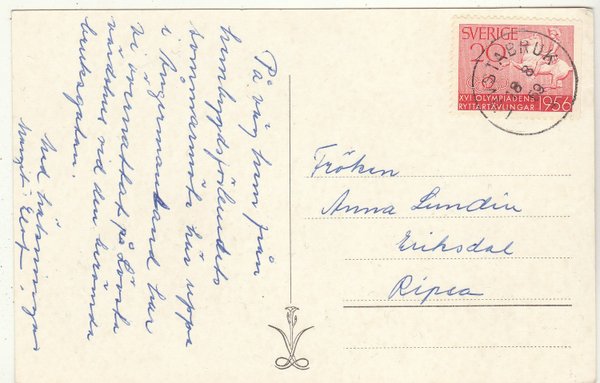 På väg hem från
hembygdsförbundets
sommarmöte här uppe
i Ångermanland har
vi övernattat på Lövsta
värdshus vid den berömda
bruksgatan.
Med hälsningar
Margit o Elof.
SVERIGE
20
XVI OLYMPIADENS
RYTTARTÄVLINGAR 1956
STABRUK
8
Fröken
Anna Lundin
Eriksdal
Ripsa